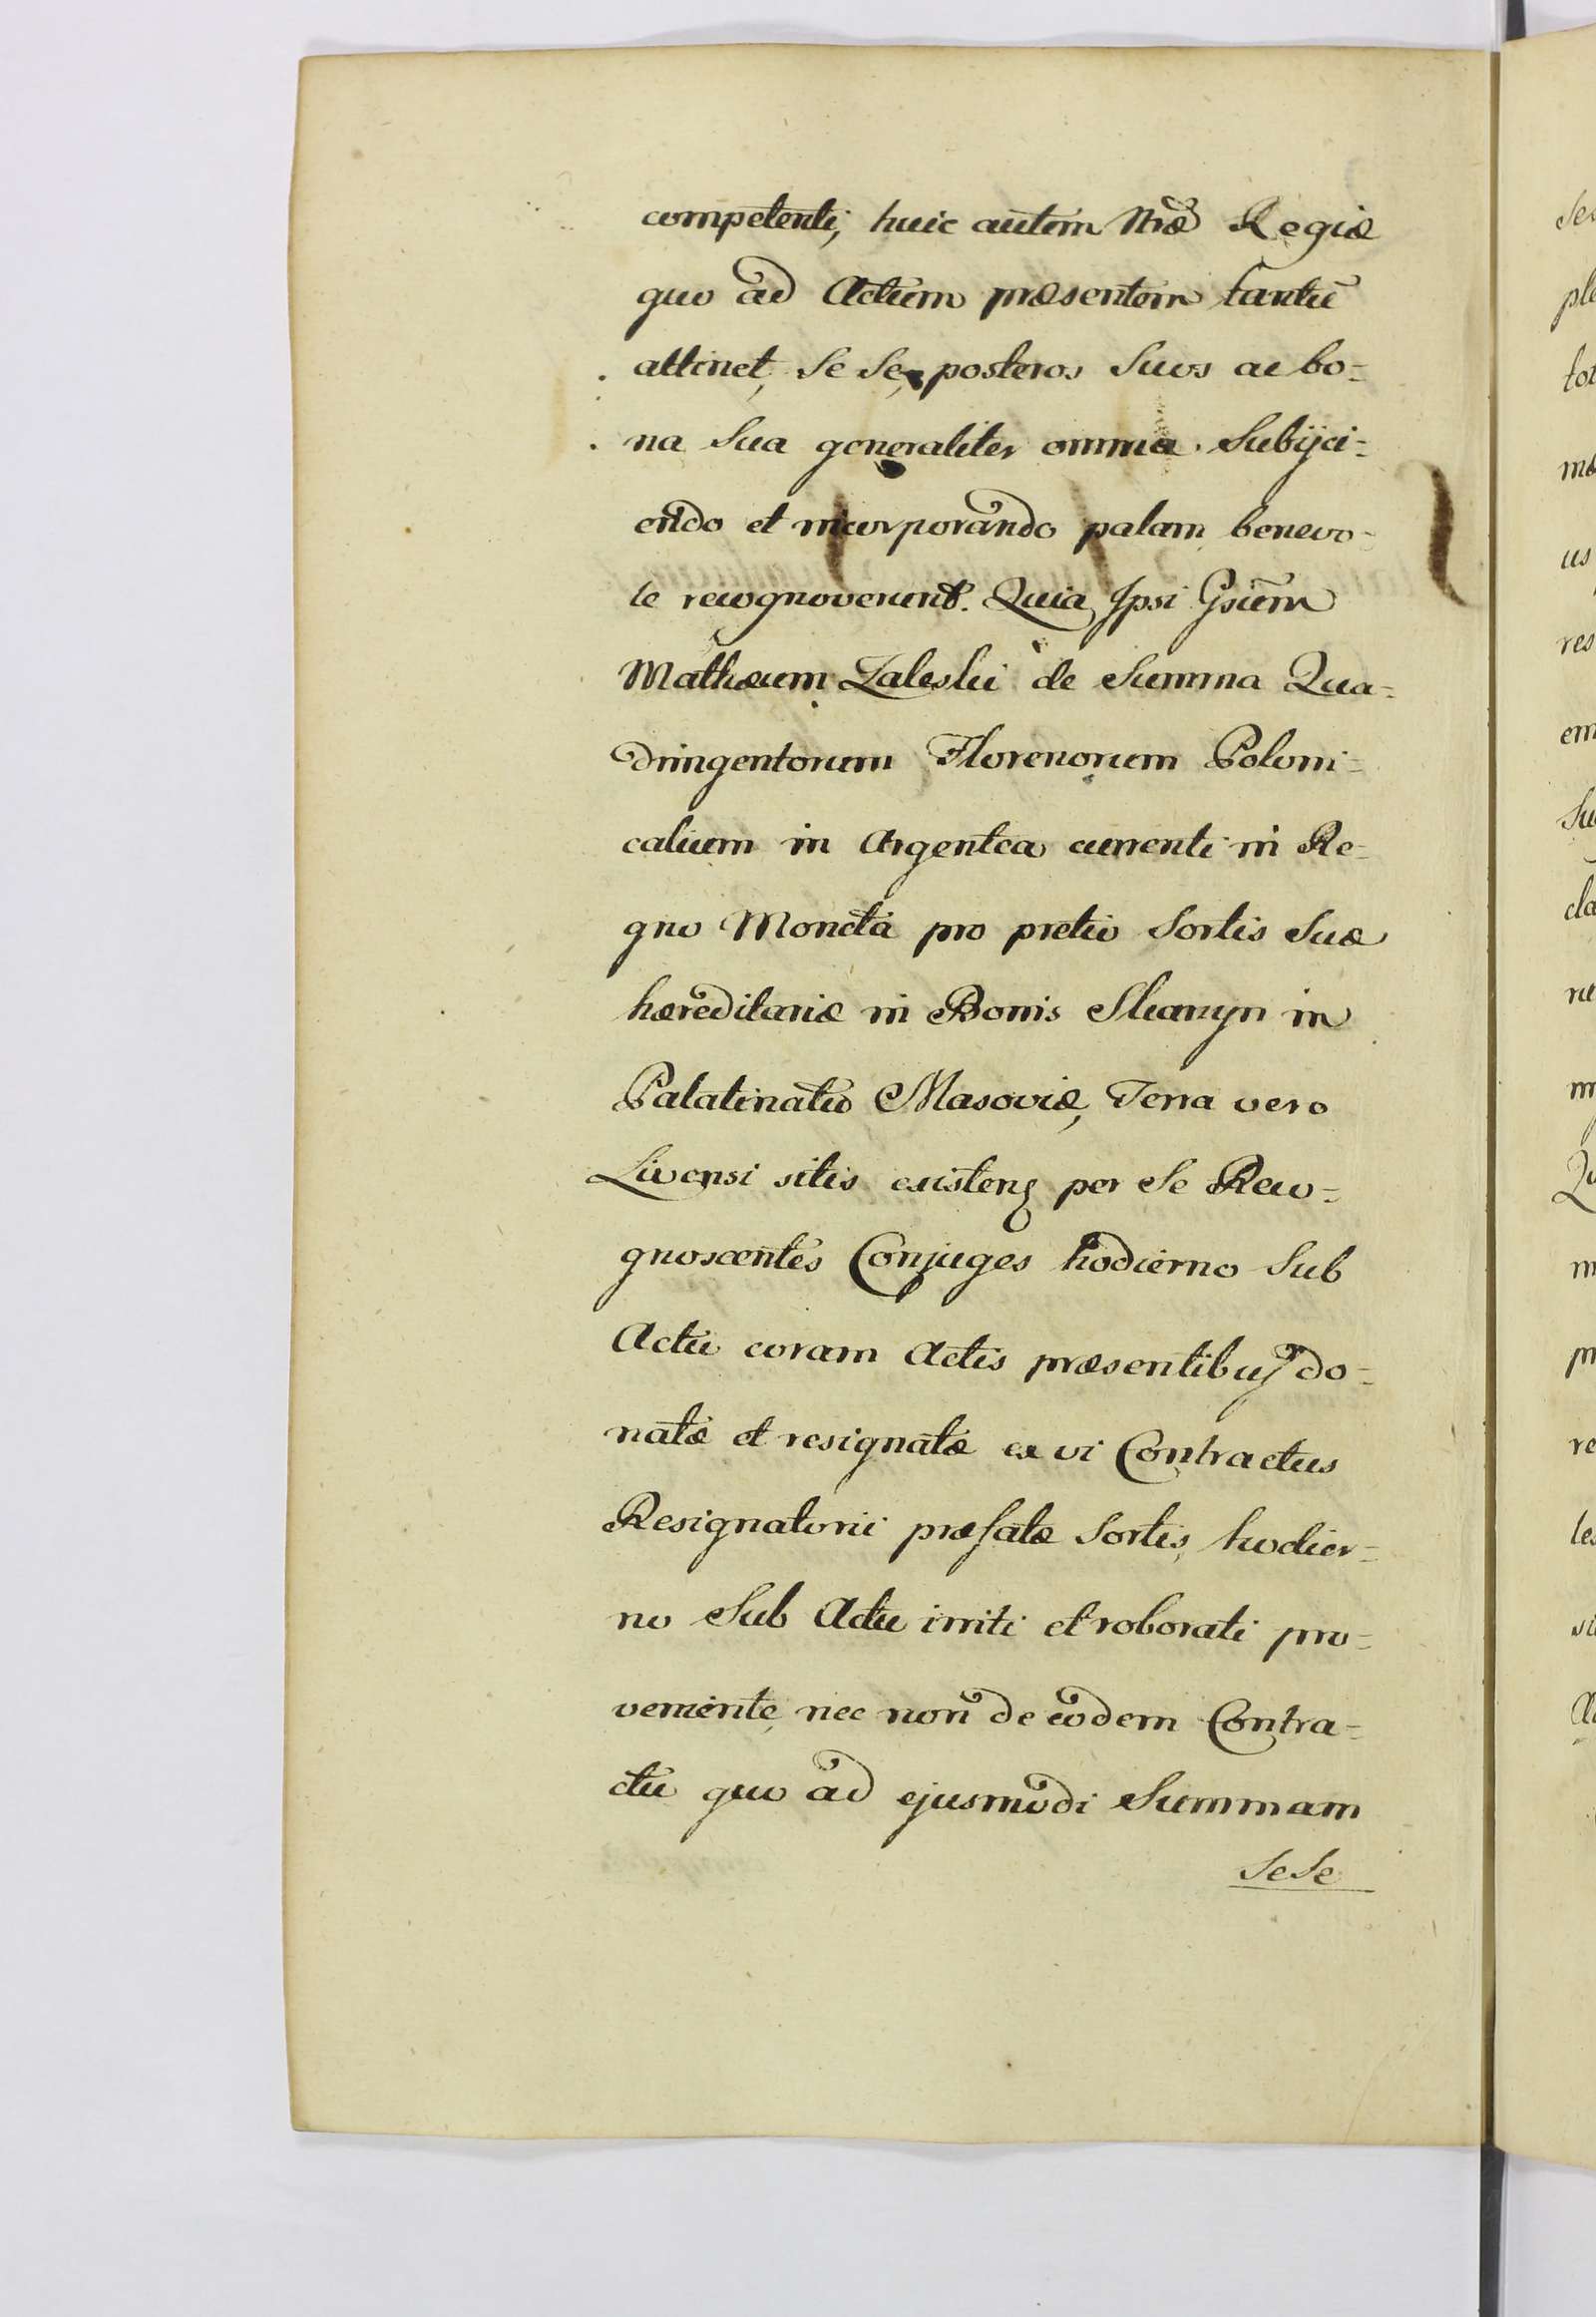 competenti, huic autem Nræ Regiæ
quo ad Actum præsentem tantū
attinet, Se Se, posteros Suos ac bo=
na Sua generaliter omnia Subijci=
endo et incorporando palam benevo=
le recognoverunt. Quia Ipsi Gsum
Mathæum Zaleski de Summa Qua=
dringentorum Florenorum Poloni=
calium in Argentea currenti in Re=
gno Moneta pro pretio Sortis Suæ
hæreditariæ in Bonis Skaryn in
Palatinatu Masoviæ, Terra vero
Livensi sitis existen per Se Reco=
gnoscentes Conjuges hodierno Sub
Actu coram Actis præsentibus do=
natæ et resignatæ ex vi Contractus
Resignatorii præfatæ Sortis, hodier=
no Sub Actu initi et roborati pro=
veniente, nec non de eodem Contra=
ctu quo ad ejusmodi Summam
Se Se